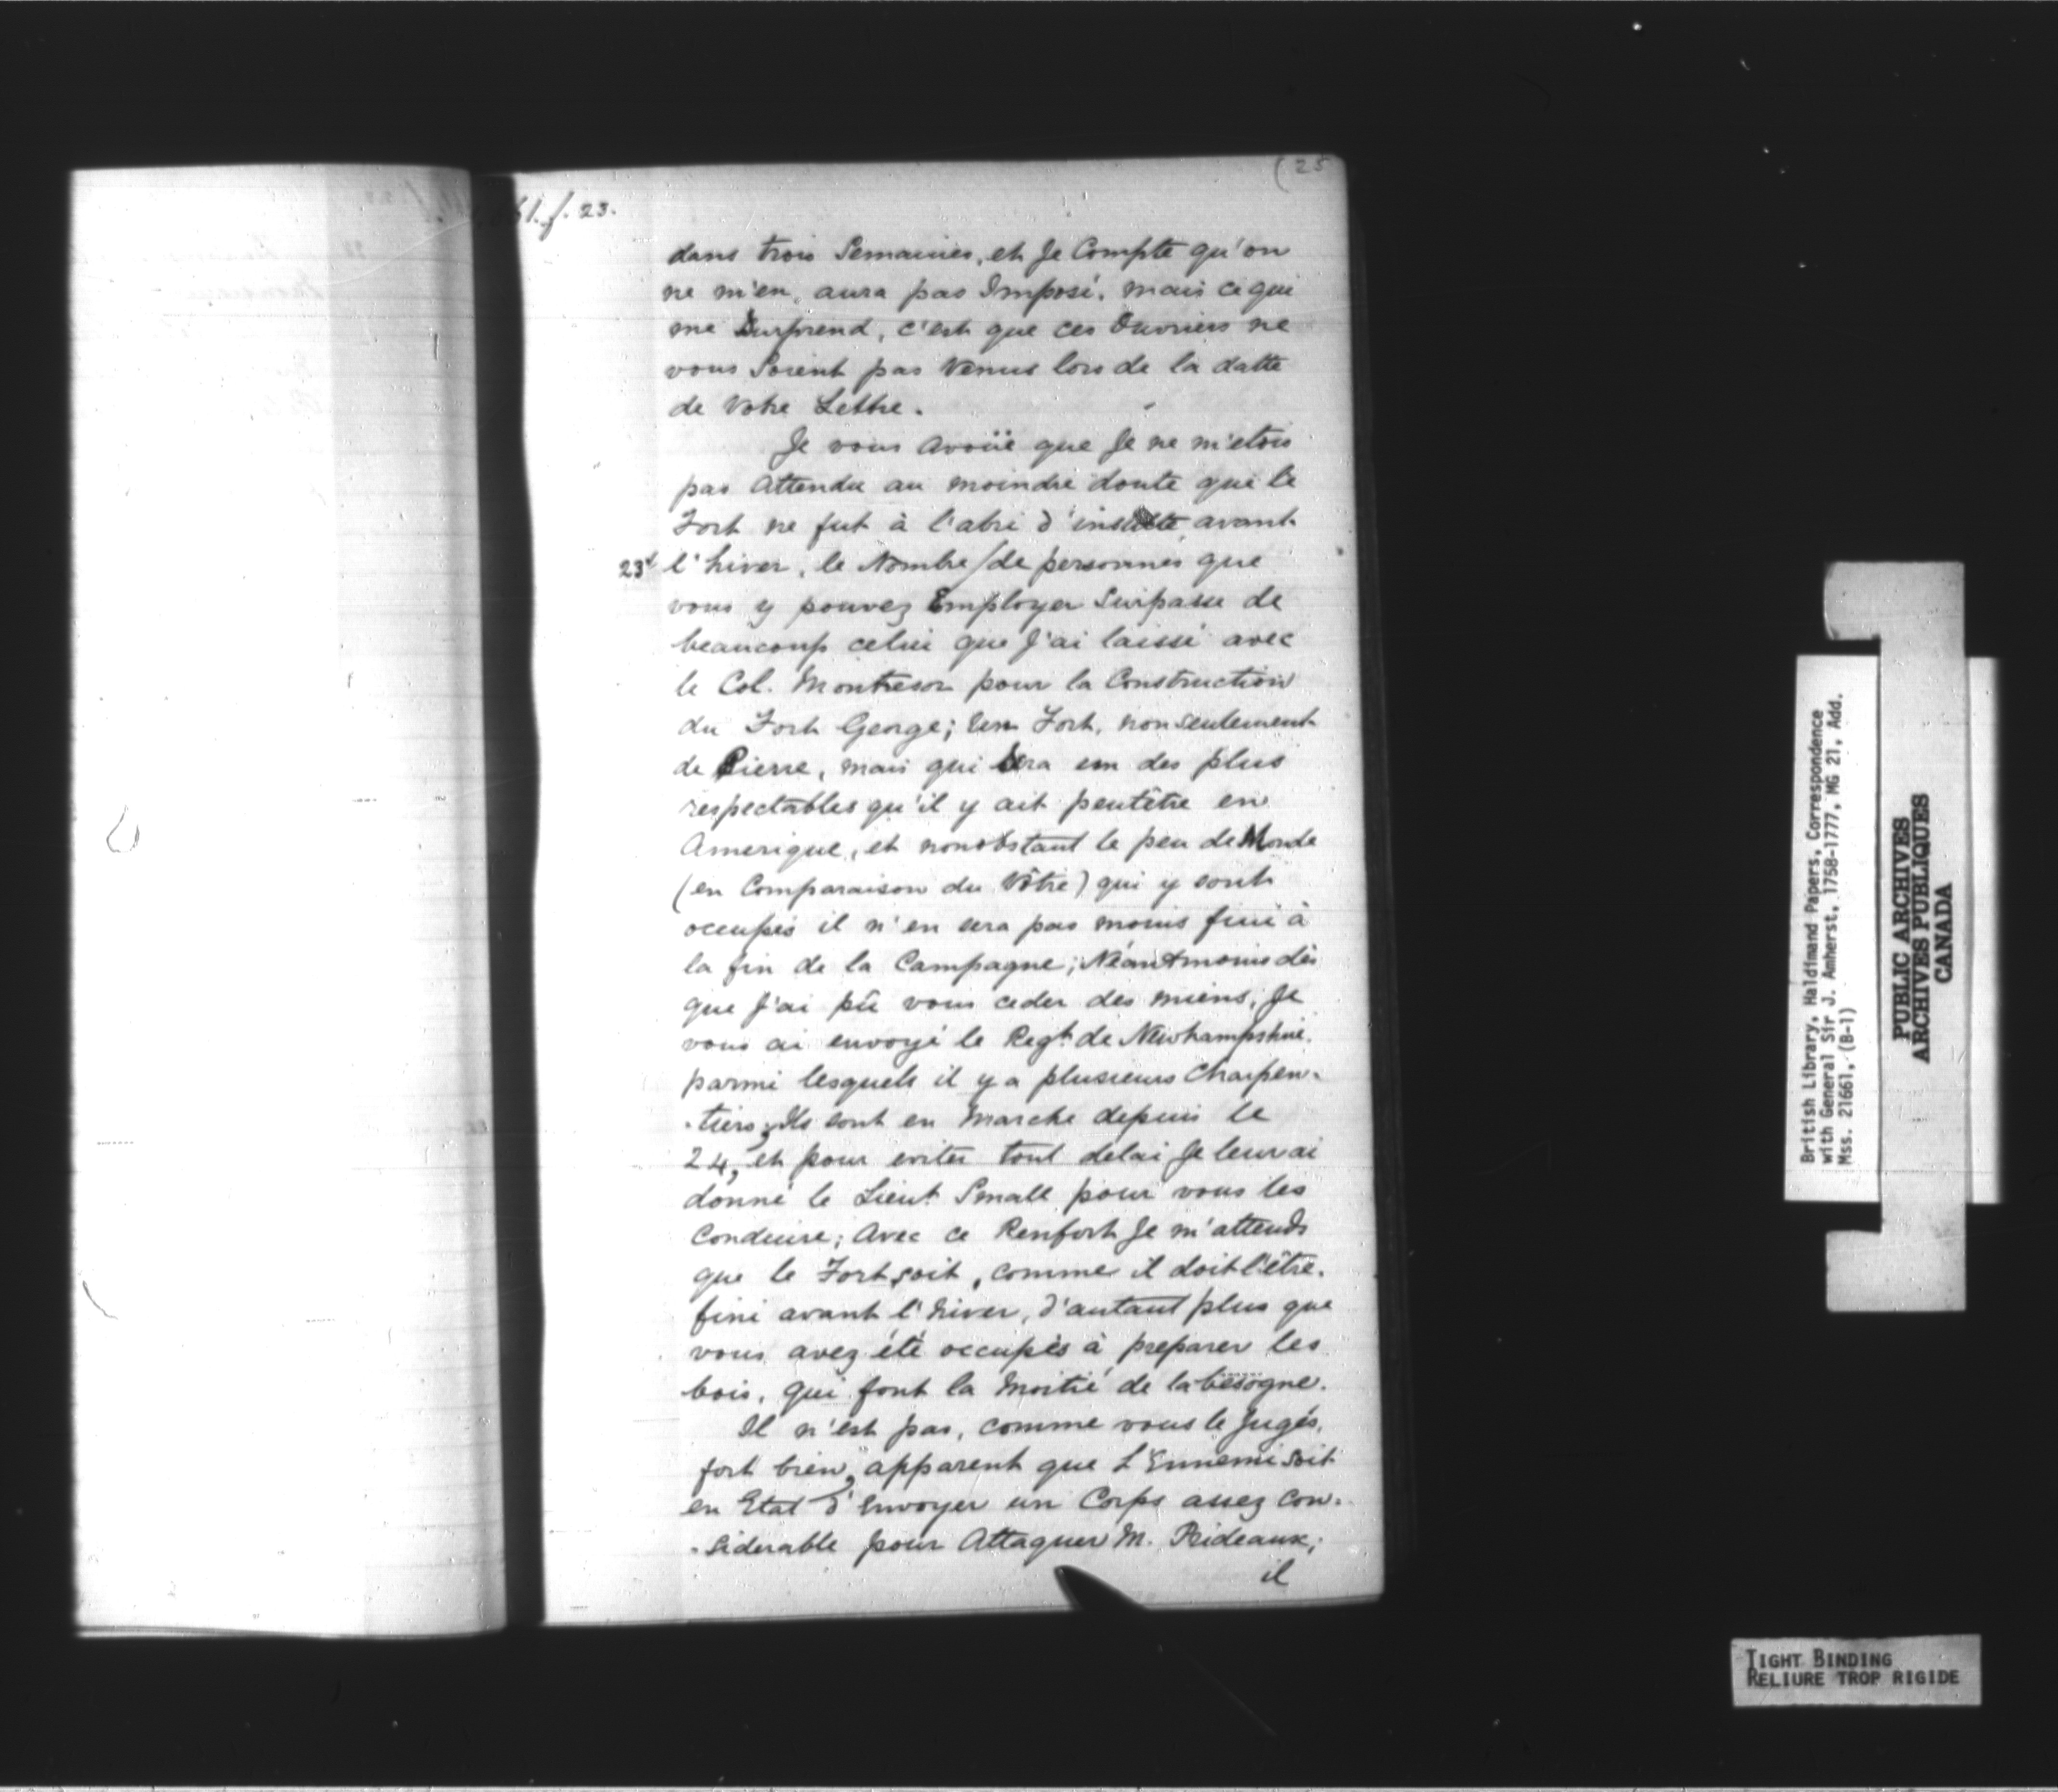 (25
61. f. 23.
dans trois Semaines, et Je Compte qu'on
ne m'en aura pas Imposé. mais ce qui
me Surprend, c'est que ces Ouvriers ne
vous Soient pas Venus lors de la datte
de Votre Lettre.
Je vous avoüe que Je ne m'etois
pas attendu au moindre doute que le
Fort ne fut à l'abri d'insulte, avant
23v l'hiver, le Nombre/de personnes que
vous y pouvez Employer Surpasse de
beaucoup celui que J'ai laissé avec
le Col. Montresor pour la Construction
du Fort George; Un Fort, non seulement
de Pierre, mais qui Sera un des plus
respectables qu'il y ait peutêtre en
Amerique, et nonobstant le peu de Monde
(en Comparaison du Vôtre) qui y sont
occupés il n'en sera pas moins fini à
la fin de la Campagne; Néantmoins dès
que J'ai pû vous ceder des miens, Je
vous ai envoyé le Regt. de Newhampshire.
parmi lesquels il y a plusieurs Charpen-
-tiers; Ils sont en Marche depuis le
24, et pour eviter tout delai Je leur ai
donné le Lieut. Small pour vous les
Conduire; Avec ce Renfort Je m'attends
que le Fort soit, comme il doit l'être.
fini avant l'hiver, d'autant plus que
vous avez été occupés à preparer les
bois, qui font la Moitié de la besogne.
Il n'est pas, comme vous le Jugés,
fort bien, apparent que L'Ennemi soit
en Etat d'Envoyer un Corps assez con-
-siderable pour Attaquer M. Prideaux;
il
British Library, Haldimand Papers, Correspondence
with General Sir J. Amherst, 1758-1777, MG 21, Add.
Mss. 21661, (B-1)
PUBLIC ARCHIVES
ARCHIVES PUBLIQUES
CANADA
TIGHT BINDING
RELIURE TROP RIGIDE